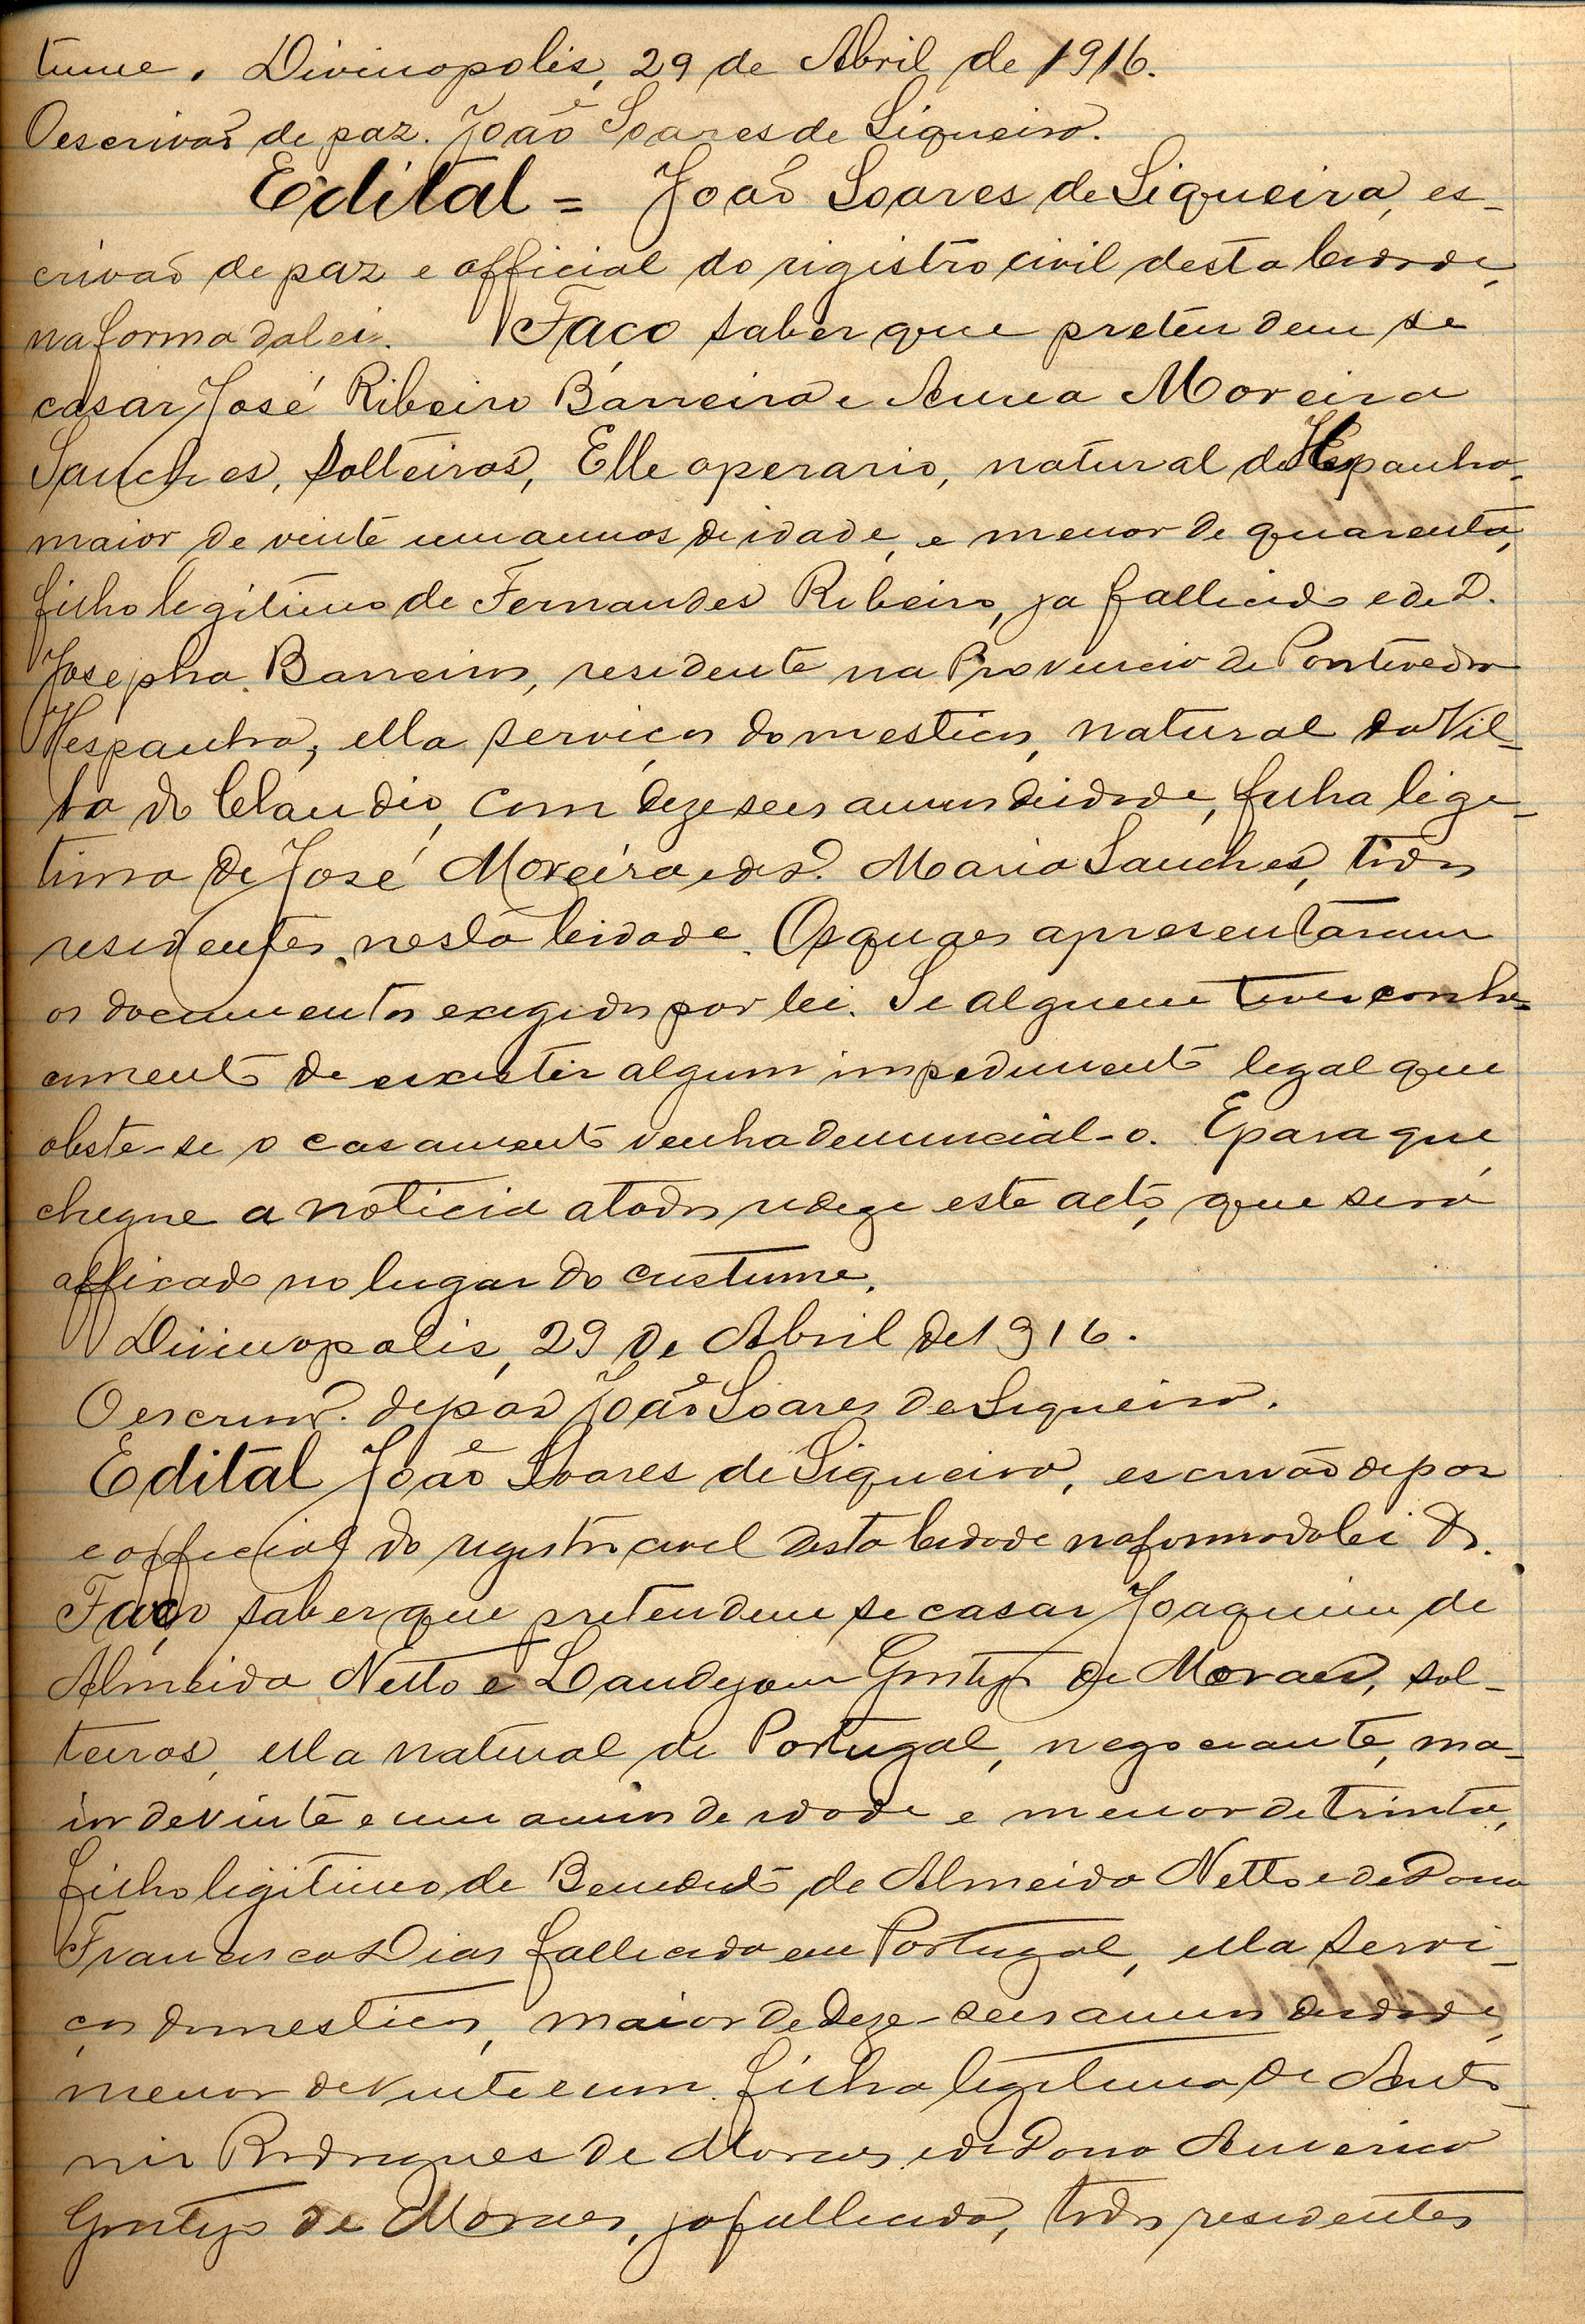 tume. Divinopolis, 29 de Abril de 1916.
O escrivaõ de paz. Joaõ Soares de Siqueira.
Edital = Joaõ Soares de Siqueira, es-
crivaõ de paz e official do rigistro civil desta Cidade,
na forma da lei. Faço saber que pretendem se
casar José Ribeiro Barreira e Anna Moreira
Sanches, solteiros, Elle operario, natural da Hespanha
maior de vinte um annos de idade, e menor de quarenta,
filho legitimo de Fernandes Ribeiro, ja fallicido e de D.
Josepha Barreiro, residente na Provincia de Pontevedra
Hespanha; ella serviços domesticos, natural da Vil-
la do Claudio, com dezeseis annos de idade, filha lige-
tima de José Moreira e de D. Maria Sanches, todos
residentes nesta Cidade. Os quaes apresentaram
os documentos exegidos por lei. Se alguem tiver conhe-
cimento de existir algum impedimento legal que
obste-se o casamento venha denuncial-o. E para que
chegue a noticia a todos redege este acto, que será
affixado no lugar do custume.
Divinopolis, 29 de Abril de 1916.
O escrivaõ de paz Joaõ Soares de Siqueira.
Edital Joaõ Soares de Siqueira, escrivão de paz
e official do registro civel desta Cidade na forma da lei &.
Faço saber que pretendem se casar Joaquim de
Almeida Netto e Gontijo de Moraes, sol-
teiros, ella natural de Portugal, negociante, ma-
ior de vinte e um annos de idade e menor de trinta,
filho ligitimo de Benedicto de Almeida Netto e de Dona
Francisca Dias fallecida em Portugal, ella servi-
ços domesticos, maior de deze-seis annos de idade,
menor de vinte e um filha legitima de Anto-
nio Rodrigues de Moraes e de Dona America
Gontijo de Moraes, ja fallecida, todos residentes